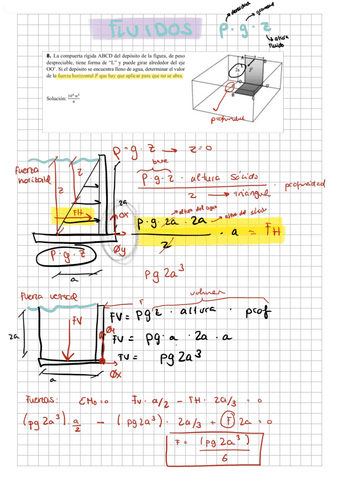 FLUIDOS
densidad
gravedad
ρ · g · z
altura fluido
8. La compuerta rígida ABCD del depósito de la figura, de peso
despreciable, tiene forma de "L" y puede girar alrededor del eje
OO'. Si el depósito se encuentra lleno de agua, determinar el valor
de la fuerza horizontal F que hay que aplicar para que no se abra.
Solución:
profundidad
ρ · g · z → z=0
Fuerza
horizontal
base
ρ · g · z · altura sólido
2 → Triángulo · profundidad
z
z
2a
FH
Øx
Øy
altura del agua
altura del sólido
ρ · g · 2a · 2a
2
· a = FH
ρ · g · z
a
ρg2a³
Fuerza vertical
volumen
2a
FV
Øy
Øx
a
FV = ρgz · altura · prof
FV = ρg · a · 2a · a
FV = ρg2a³
Fuerzas: ΣM₀=0 Fv · a/2 - FH · 2a/3 = 0
(ρg2a³) · a/2 - (ρg2a³) · 2a/3 + F 2a = 0
F = (ρg2a³)
6